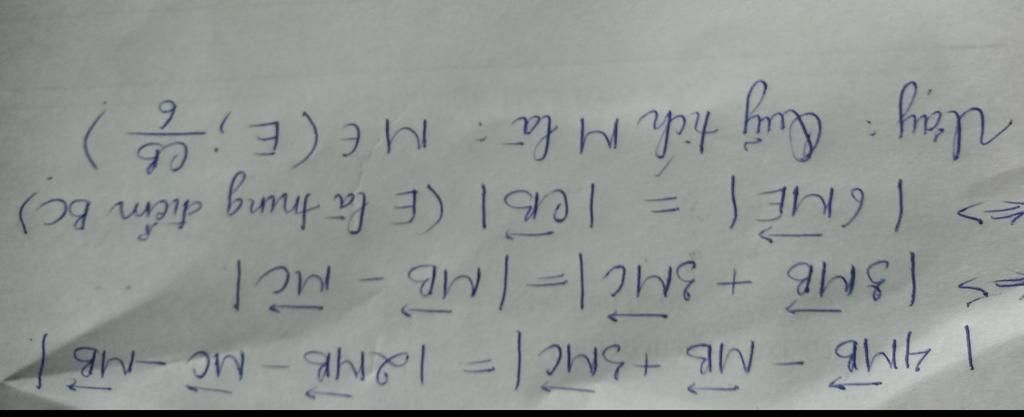 |4\overrightarrow{MB} - \overrightarrow{MB} + 3\overrightarrow{MC}| = |2\overrightarrow{MB} - \overrightarrow{MC} - \overrightarrow{MB}|
=> |3\overrightarrow{MB} + 3\overrightarrow{MC}| = |\overrightarrow{MB} - \overrightarrow{MC}|
<=> |6\overrightarrow{ME}| = |\overrightarrow{CB}| (E là trung điểm BC)
Vậy: Quỹ tích M là: M ∈ (E; \frac{CB}{6})